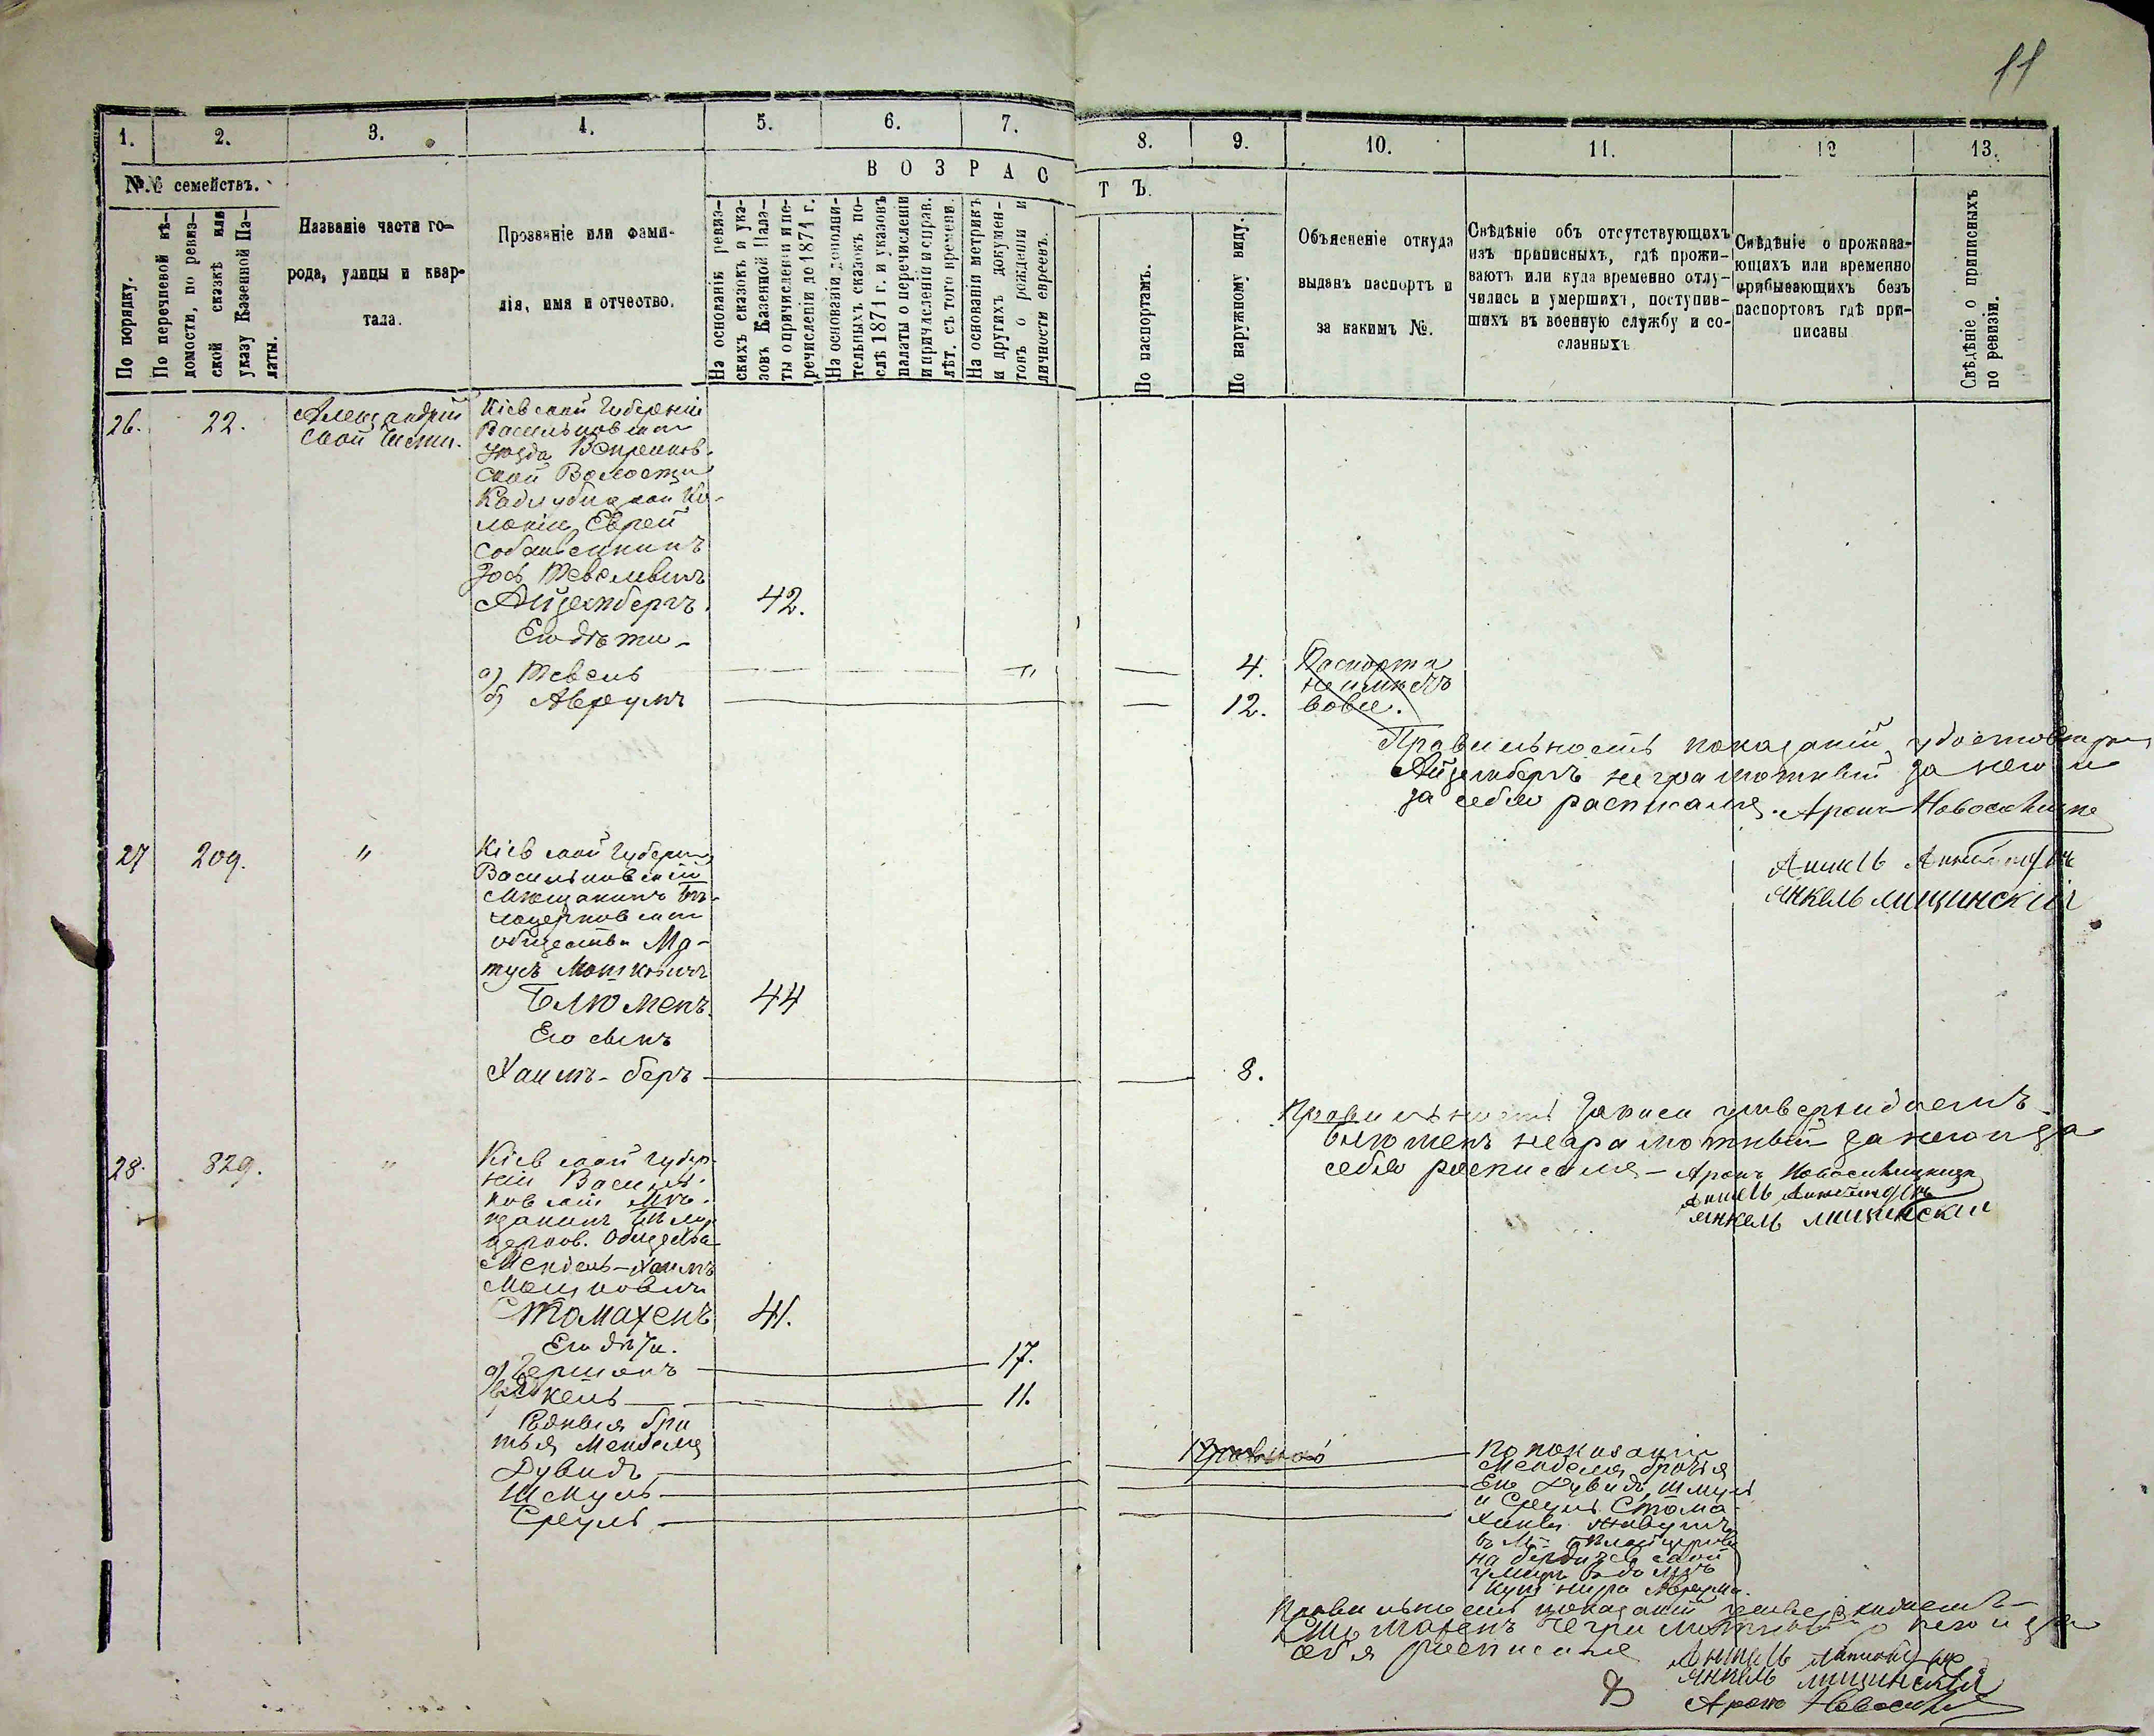 11
1. 2. 3. 4. 5. 6. 7. 8. 9. 10. 11. 12 13.
№.№ семействъ.
В О З Р А С Т Ъ.
По порядку.
По перечневой вѣ-
домости, по ревиз-
ской сказкѣ или
указу Казенной Па-
латы.
Названіе части го-
рода, улицы и квар-
тала.
Прозваніе или фами-
лія, имя и отчество.
На основаніи ревиз-
скихъ сказокъ и ука-
зовъ Казенной Пала-
ты о причисленіи и пе-
речисленіи до 1871 г.
На основаніи дополни-
тельныхъ сказокъ по-
слѣ 1871 г. и указовъ
палаты о перечисленіи
и причисленіи и справ.
лѣт. съ того времени.
На основаніи метрикъ
и другихъ докумен-
товъ о рожденіи и
личности евреевъ.
По паспортамъ.
По наружному виду.
Объясненіе откуда
выданъ паспортъ и
за какимъ №.
Свѣдѣніе объ отсутствующихъ
изъ приписныхъ, гдѣ прожи-
ваютъ или куда временно отлу-
чились и умершихъ, поступив-
шихъ въ военную службу и со-
сланныхъ
Свѣдѣніе о прожива-
ющихъ или временно
прибывающихъ безъ
паспортовъ гдѣ при-
писаны
Свѣдѣніе о приписныхъ
по ревизіи.
26. 22. Александрій
ской части.
Кіевской Губерніи
Васильковскаго
уѣзда
ской Волости
Кадлубицкой Ко-
лоніи Еврей
собственникъ
Іось Тевелевичъ
Айзенбергъ. 42.
Его дѣти -
а) Тевель " 4.
б) Аврумъ 12.
Паспорта
не имѣетъ
вовсе.
Правильность показаній удостовѣряю
Айзенбергъ неграмотный за него и
за себя росписался. Аронъ
Янкель Мицинскій
27 209. "
Кіевской Губерніи
Васильковскій
Мѣщанинъ Бѣ-
лоцерковскаго
общества Ма-
тусъ Мошковичъ
Блюменъ. 44
Его сынъ
Хаимъ-беръ 8.
Правильность записи утверждаетъ
Блюменъ неграмотный за него и за
себя росписался - Аронъ
Янкель Мицинскій
28. 829. "
Кіевской Губер-
ніи Василь-
ковскій Мѣ-
щанинъ Бѣло-
церков. Общества
Мендель-Хаимъ
Мошковичъ
Стомахенъ 41.
Его дѣти.
а) Гершонъ 17.
11.
Родныя бра
тья Менделя
Дувидъ
Шмуль
Среуль
По показанію
Менделя братья
Его Дувидъ, Шмуль
и Среуль Стома-
хины живутъ
въ М. Бѣлой церкви
на бердичевской
улицѣ въ домѣ
Аврума.
Правильность показаній утверждаетъ
Стомахенъ неграмотный за него и за
себя росписался
Янкель Мицинскій
Аронъ